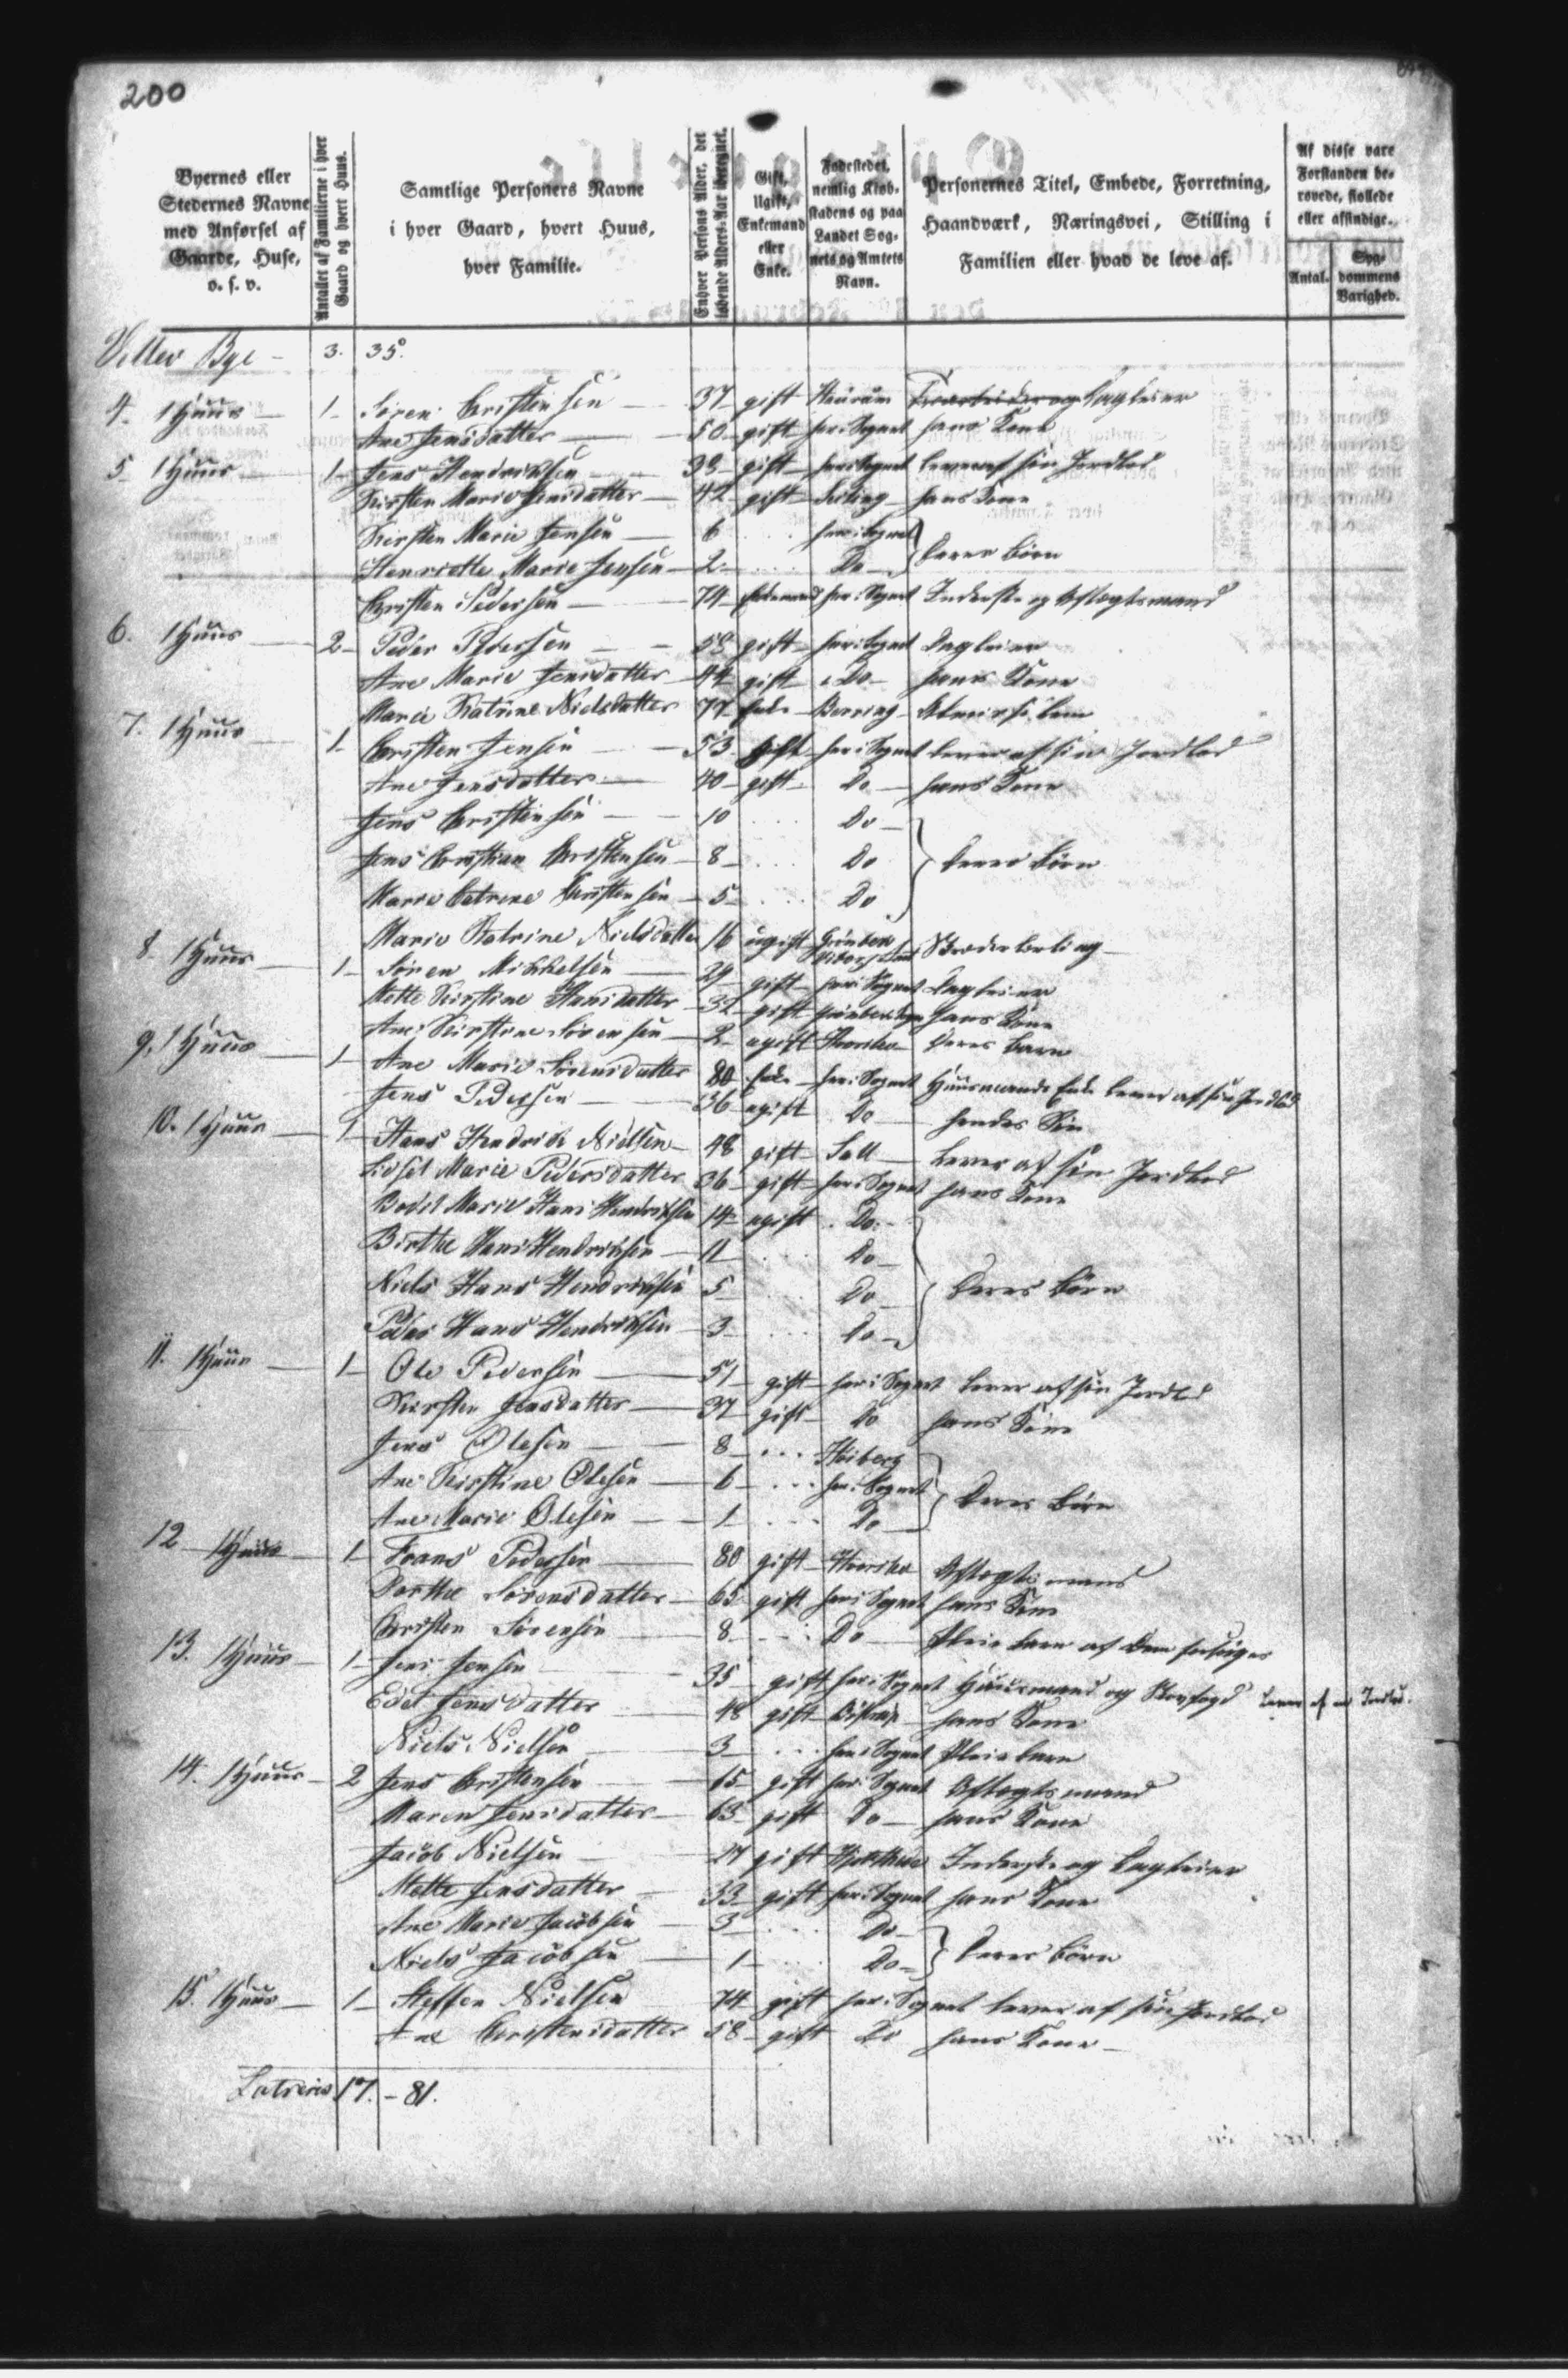 200
Byernes eller Stedernes Navne med Anførsel af Gaarde, Huse, o. s. v.
Antallet af Familierne i hver Gaard og hvert Huus.
Samtlige Personers Navne i hver Gaard, hvert Huus, hver Familie.
Enhver Persons Alder, det løbende Alders-Aar iberegnet.
Gift, Ugift, Enkemand eller Enke.
Fødestedet, nemlig Kjøbstadens og paa Landet Sognets og Amtets Navn.
Personernes Titel, Embede, Forretning, Haandværk, Næringsvei, Stilling i Familien eller hvad de leve af.
Af disse vare Forstanden berøvede, fiollede eller afsindige.
Antal.
Sygdommens Varighed.
Vellev Bye - 3. 35.
4. 1 Huus 1 Søren Christensen 37 gift Dagleier
Ane Jensdatter 50 gift her i Sognet hans Kone
5 1 Huus 1 Jens Hendriksen gift her i Sognet lever af sin Jordlod
Kirsten Marie Jensdatter 42 gift hans Kone
Kirsten Marie Jensen 6 .. her i Sognet } deres Børn
Henriette Marie Jensen 2 .. Do }
Christen Pedersen 74 Enkemand her i Sognet Inderste og Aftægtsmand
6. 1 Huus 2 Peder Pedersen gift her i Sognet Dagleier
Ane Marie Jensdatter 44 gift Do hans Kone
Marie Katrine Nielsdatter 77 Enke Almisselem
7. 1 Huus 1 Christen Jensen 53 gift her i Sognet lever af sin Jordlod
Ane Jensdatter 40 gift Do hans Kone
Jens Christensen 10 ... Do
Jens Christian Christensen 8 ... Do } deres Børn
Marie Catrine Christensen 5 ... Do
Marie Katrine Nielsdatter 16 ugift Viborg Amt
8. 1 Huus 1 Søren Mikkelsen 29 gift her i Sognet Dagleier
Mette Kirstine Hansdatter 32 gift hans Kone
Ane Kirstine Sørensen 2 ugift deres Barn
9. 1 Huus 1 Ane Marie Sørensdatter 80 Enke her i Sognet Huusmands Enke lever af sin Jordlod
Jens Pedersen 36 ugift Do hendes Søn
10. 1 Huus 1 Hans Hendrik Nielsen 48 gift Sall Lever af sin Jordlod
Sidsel Marie Pedersdatter 36 gift her i Sognet hans Kone
Bodil Marie Hans Hendriksen 14 ugift Do
Birthe Hans Hendriksen 11 .. Do
Niels Hans Hendriksen 5 .. Do } deres Børn
Peder Hans Hendriksen 3 .. Do
11. 1 Huus 1 Ole Pedersen 51 gift her i Sognet lever af sin Jordlod
Kirsten Jensdatter 37 gift Do hans Kone
Jens Olesen 8 ... Høiberg
Ane Kirstine Olesen 6 ... her i Sognet } deres Børn
Ane Marie Olesen 1 ... Do
12 1 Huus 1 Frans Pedersen 80 gift Aftægtsmand
Dorthe Sørensdatter 65 gift her i Sognet hans Kone
Christen Sørensen 8 ... Do Pleiebarn af dem forsørges
13. 1 Huus 1 Jens Jensen 35 gift her i Sognet Huusmand og Skovfoged lever af en Jordlod.
Edel Jensdatter 48 gift hans Kone
Niels Nielsen 3 ... her i Sognet Pleiebarn
14. 1 Huus 2 Jens Christensen 65 gift her i Sognet Aftægtsmand
Maren Jensdatter 63 gift Do hans Kone
Jacob Nielsen 27 gift Inderste og Dagleier
Mette Jensdatter 33 gift her i Sognet hans Kone
Ane Marie Jacobsen 3 ... Do
Niels Jacobsen 1 ... Do } deres Børn
15. 1 Huus 1 Steffen Nielsen 74 gift her i Sognet lever af sin Jordlod
Ane Christensdatter 58 gift Do hans Kone
Lateris 17. - 81.